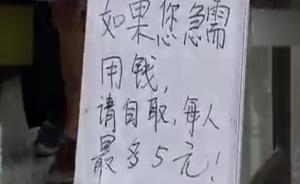 如果您急需
用钱,
请自取,每人
最多5元!